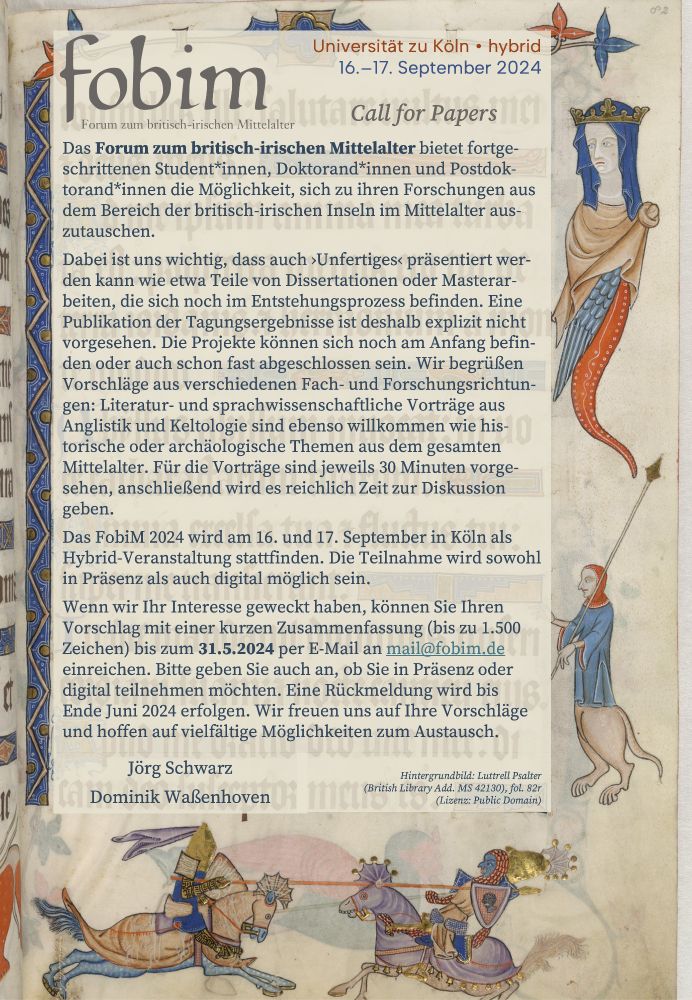 fobim
Forum zum britisch-irischen Mittelalter
Universität zu Köln • hybrid
16.–17. September 2024
Call for Papers
Das Forum zum britisch-irischen Mittelalter bietet fortge-
schrittenen Student*innen, Doktorand*innen und Postdok-
torand*innen die Möglichkeit, sich zu ihren Forschungen aus
dem Bereich der britisch-irischen Inseln im Mittelalter aus-
zutauschen.
Dabei ist uns wichtig, dass auch ›Unfertiges‹ präsentiert wer-
den kann wie etwa Teile von Dissertationen oder Masterar-
beiten, die sich noch im Entstehungsprozess befinden. Eine
Publikation der Tagungsergebnisse ist deshalb explizit nicht
vorgesehen. Die Projekte können sich noch am Anfang befin-
den oder auch schon fast abgeschlossen sein. Wir begrüßen
Vorschläge aus verschiedenen Fach- und Forschungsrichtun-
gen: Literatur- und sprachwissenschaftliche Vorträge aus
Anglistik und Keltologie sind ebenso willkommen wie his-
torische oder archäologische Themen aus dem gesamten
Mittelalter. Für die Vorträge sind jeweils 30 Minuten vorge-
sehen, anschließend wird es reichlich Zeit zur Diskussion
geben.
Das FobiM 2024 wird am 16. und 17. September in Köln als
Hybrid-Veranstaltung stattfinden. Die Teilnahme wird sowohl
in Präsenz als auch digital möglich sein.
Wenn wir Ihr Interesse geweckt haben, können Sie Ihren
Vorschlag mit einer kurzen Zusammenfassung (bis zu 1.500
Zeichen) bis zum 31.5.2024 per E-Mail an mail@fobim.de
einreichen. Bitte geben Sie auch an, ob Sie in Präsenz oder
digital teilnehmen möchten. Eine Rückmeldung wird bis
Ende Juni 2024 erfolgen. Wir freuen uns auf Ihre Vorschläge
und hoffen auf vielfältige Möglichkeiten zum Austausch.
Jörg Schwarz
Dominik Waßenhoven
Hintergrundbild: Luttrell Psalter
(British Library Add. MS 42130), fol. 82r
(Lizenz: Public Domain)